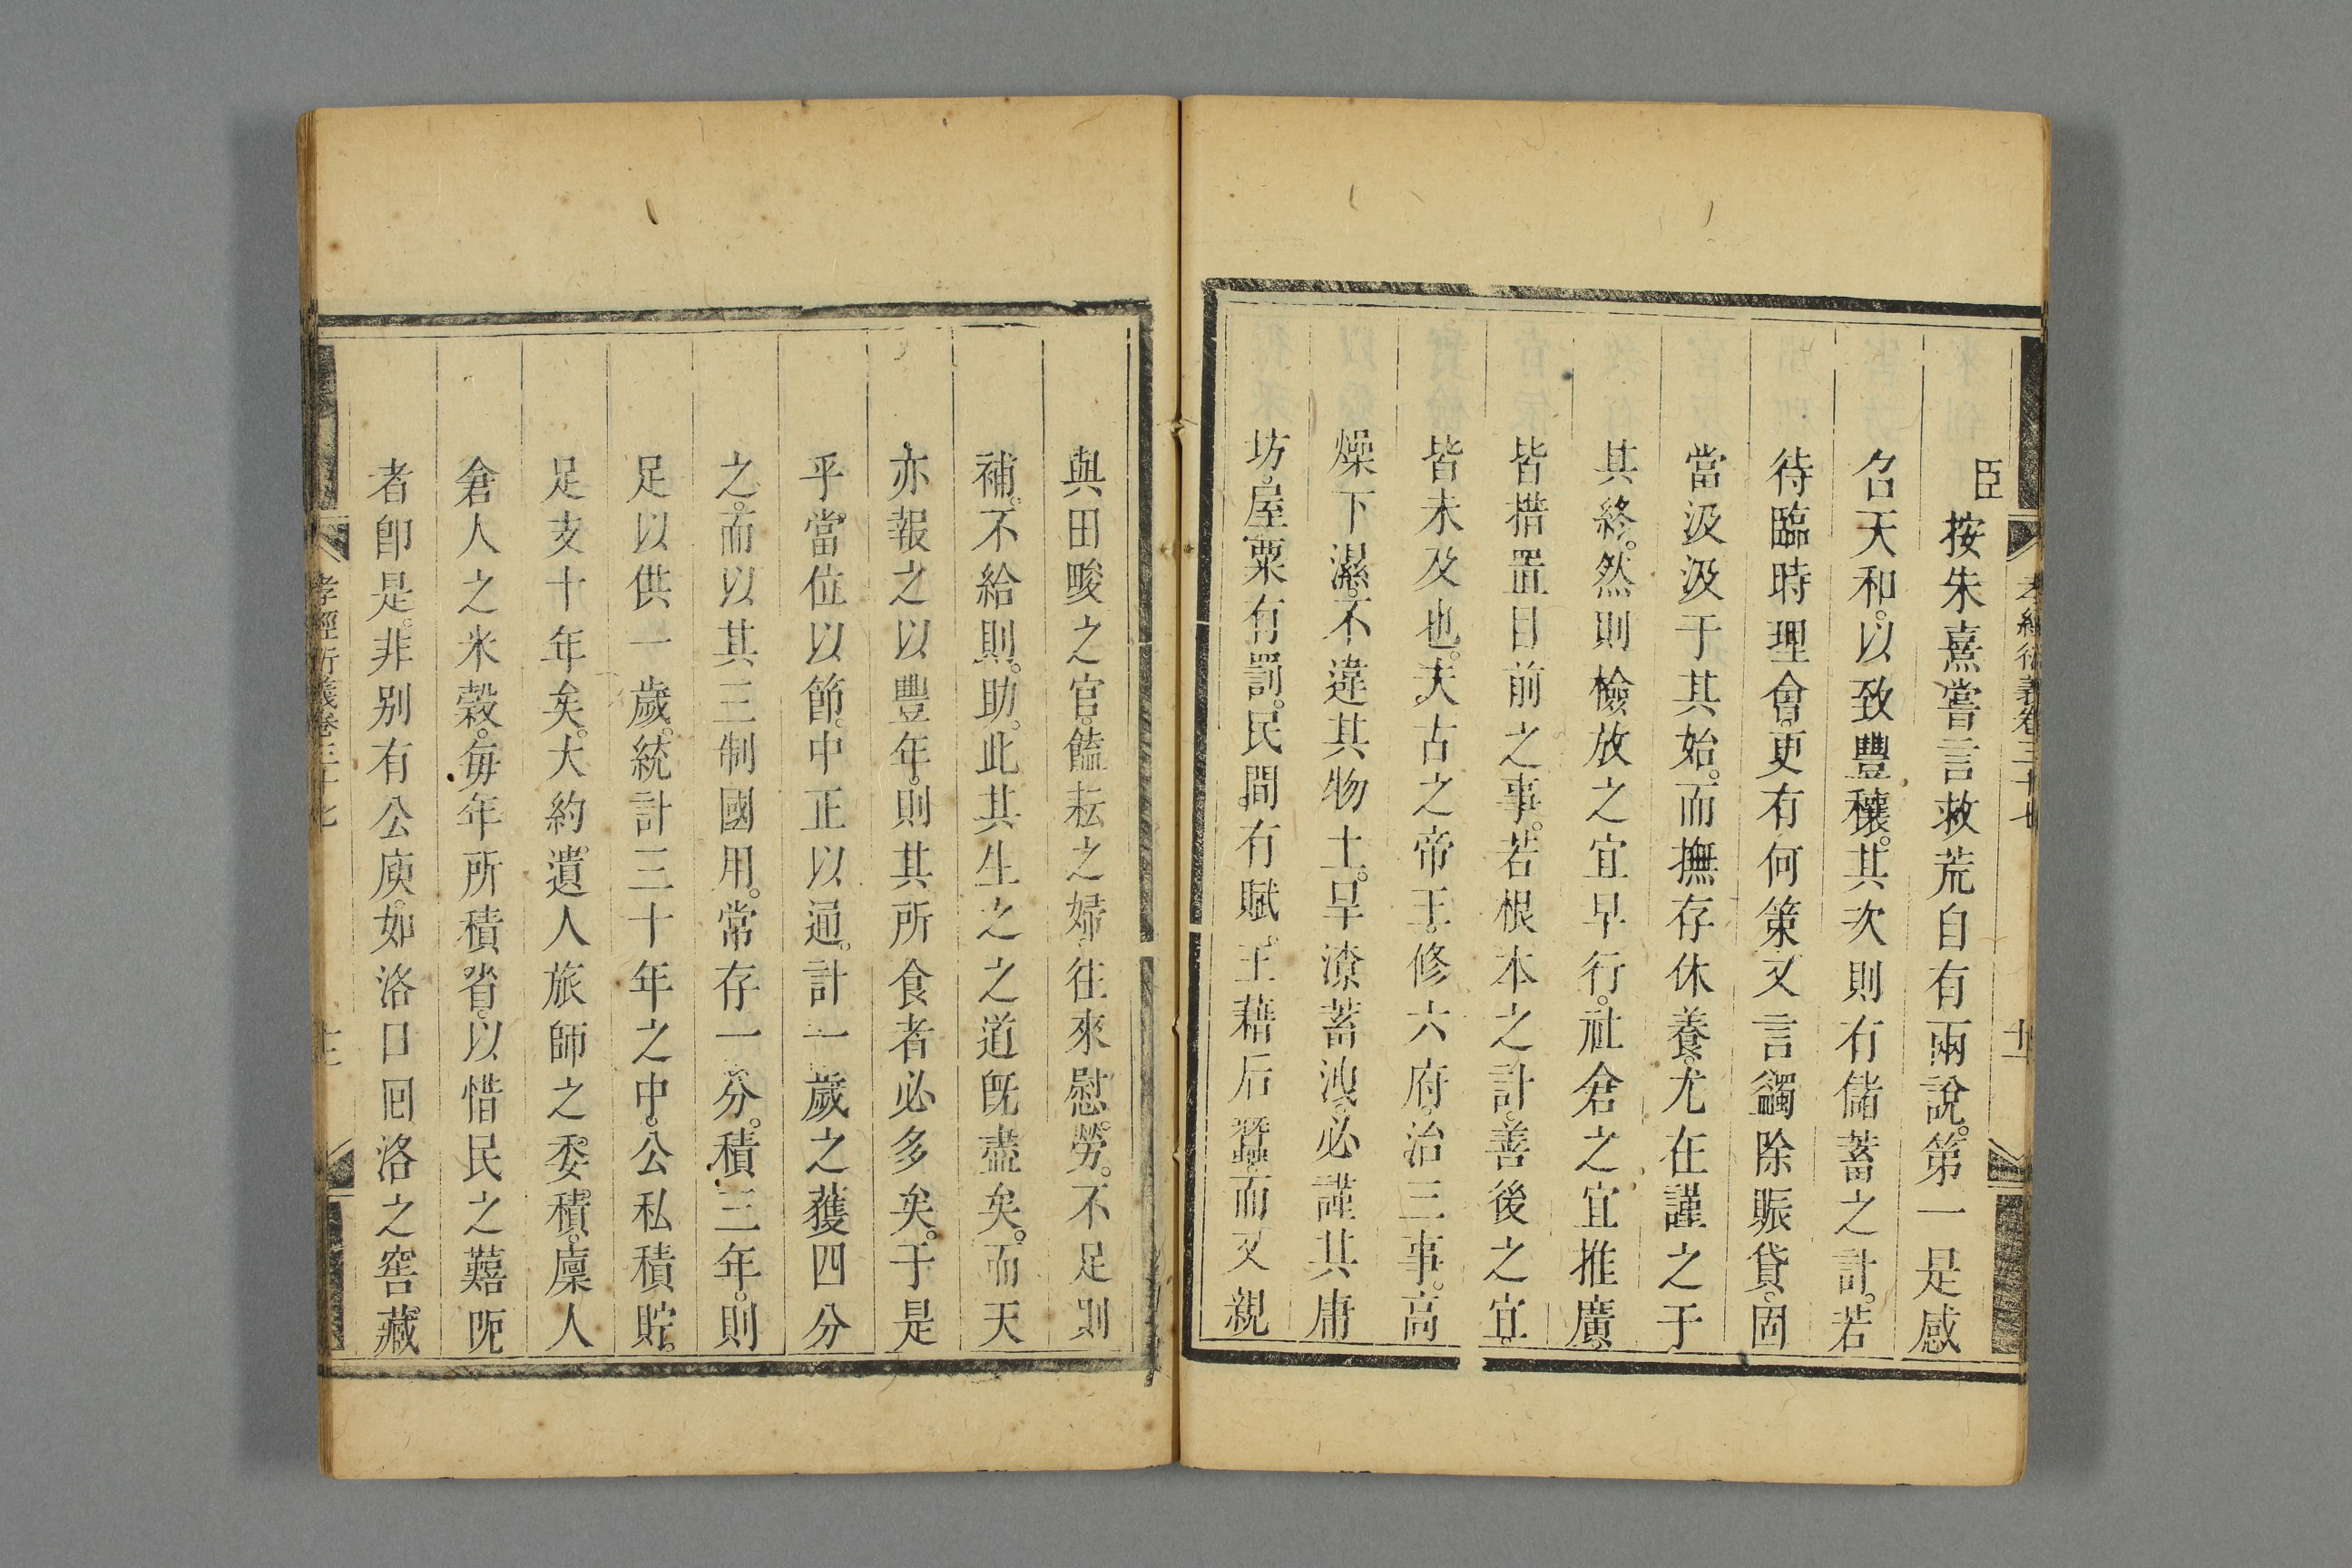 孝經衍義卷三十七
臣按朱熹嘗言救荒自有兩說。第一是感
召天和。以致豐穰。其次則有儲蓄之計。若
待臨時理會。更有何策。又言蠲除賑貸。固
當汲汲于其始。而撫存休養。尤在謹之于
其終。然則檢放之宜早行。社倉之宜推廣。
皆措置目前之事。若根本之計。善後之宜。
皆未及也。夫古之帝王。修六府。治三事。高
燥下濕。不違其物土。旱潦蓄洩。必謹其庸
坊。屋粟有罰。民間有賦。王藉后蠶。而又親
與田畯之官。饁耘之婦。往來慰勞。不足則
補。不給則。助。此其生之之道旣盡矣。而天
亦報之以豐年。則其所食者必多矣。于是
乎。當位以節。中正以通。計一歲之獲四分
之。而以其三制國用。常存一分。積三年。則
足以供一歲。統計三十年之中。公私積貯。
足支十年矣。大約遺人旅師之委積。廩人
倉人之米穀。每年所積畜。以惜民之囏阨
者卽是。非别有公庾。如洛口回洛之窖藏
孝經衍義卷三十七